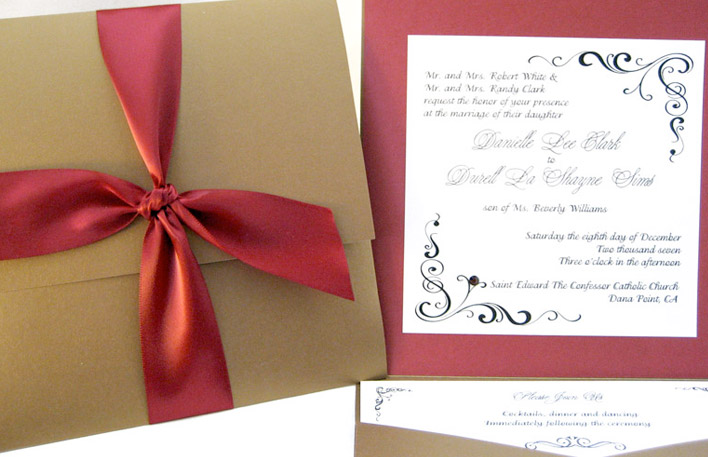 Mr. and Mrs. Robert White &
Mr. and Mrs. Randy Clark
request the honor of your presence
at the marriage of their daughter
Danielle Lee Clark
to
Durell La Shayne Sims
son of Ms. Beverly Williams
Saturday the eighth day of December
Two thousand seven
Three o'clock in the afternoon
Saint Edward The Confessor Catholic Church
Dana Point, CA
Please Join Us
Cocktails, dinner and dancing
Immediately following the ceremony